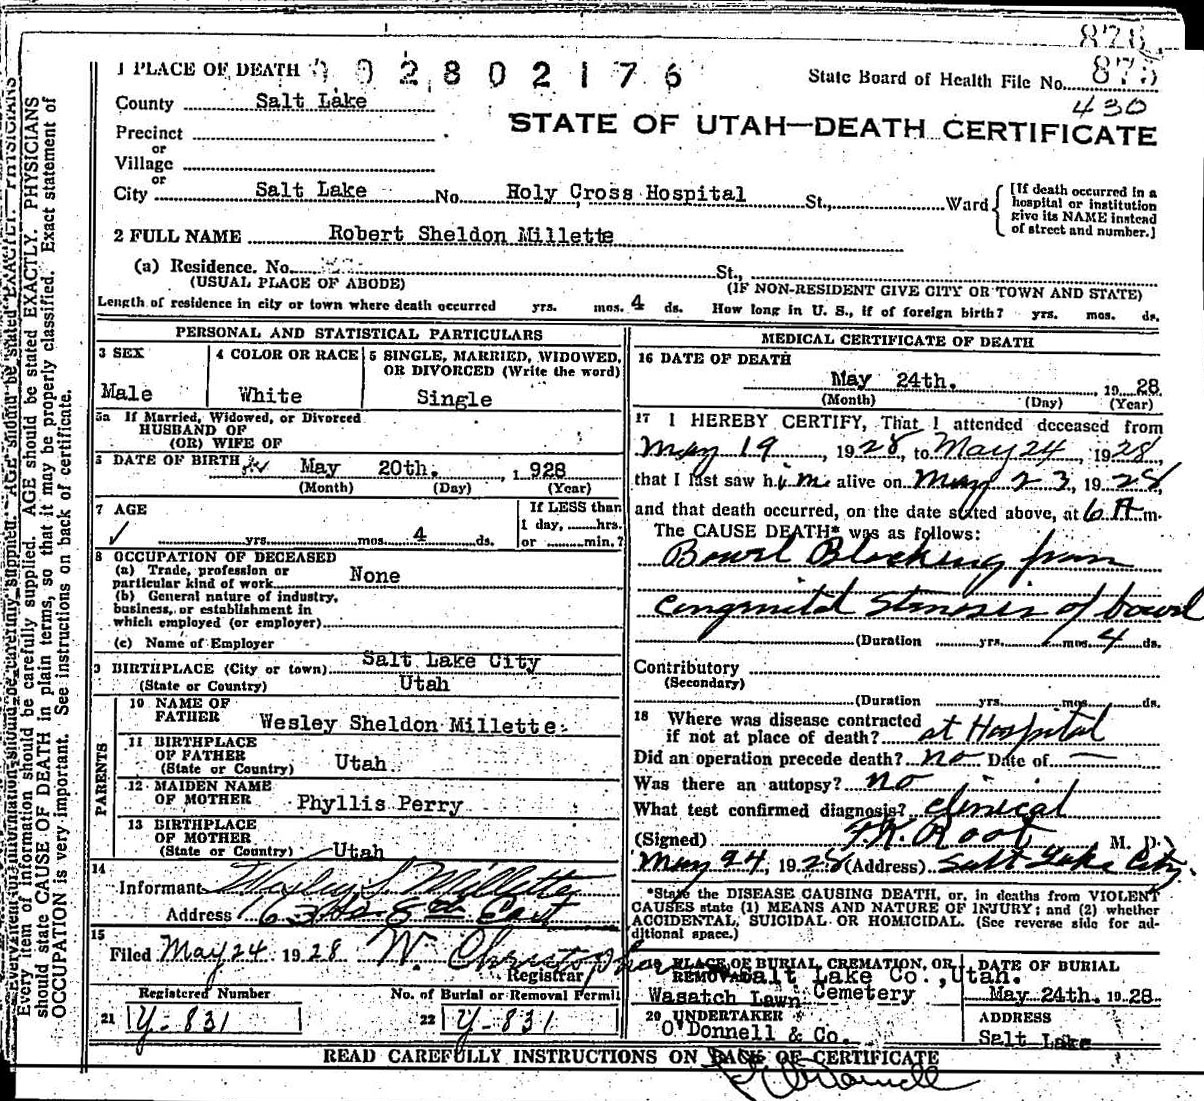 876
1 PLACE OF DEATH 002802176 State Board of Health File No. 875
430
County Salt Lake
STATE OF UTAH—DEATH CERTIFICATE
Precinct
or
Village
or
City Salt Lake No. Holy Cross Hospital St., Ward
[If death occurred in a
hospital or institution
give its NAME instead
of street and number.]
2 FULL NAME Robert Sheldon Millette
(a) Residence. No. St.,
(USUAL PLACE OF ABODE) (IF NON-RESIDENT GIVE CITY OR TOWN AND STATE)
Length of residence in city or town where death occurred yrs. mos. 4 ds. How long in U. S., if of foreign birth? yrs. mos. ds.
PERSONAL AND STATISTICAL PARTICULARS
3 SEX
Male
4 COLOR OR RACE
White
5 SINGLE, MARRIED, WIDOWED,
OR DIVORCED (Write the word)
Single
5a If Married, Widowed, or Divorced
HUSBAND OF
(OR) WIFE OF
DATE OF BIRTH May 20th. 1928
(Month) (Day) (Year)
7 AGE
yrs. mos. 4 ds.
If LESS than
1 day, hrs.
or min.?
8 OCCUPATION OF DECEASED
(a) Trade, profession or
particular kind of work None
(b) General nature of industry,
business, or establishment in
which employed (or employer)
(c) Name of Employer
9 BIRTHPLACE (City or town) Salt Lake City
(State or Country) Utah
PARENTS
10 NAME OF
FATHER Wesley Sheldon Millette
11 BIRTHPLACE
OF FATHER
(State or Country) Utah
12 MAIDEN NAME
OF MOTHER Phyllis Perry
13 BIRTHPLACE
OF MOTHER
(State or Country) Utah
14
Informant Wesley S. Millette
Address East
15
Filed May 24 1928 W. Christopher
Registrar
Registered Number No. of Burial or Removal Permit
21 Y-831 22 Y-831
MEDICAL CERTIFICATE OF DEATH
16 DATE OF DEATH
May 24th. 1928
(Month) (Day) (Year)
17 I HEREBY CERTIFY, That I attended deceased from
May 19, 1928, to May 24, 1928,
that I last saw him alive on May 23, 1928,
and that death occurred, on the date stated above, at 6 A m.
The CAUSE DEATH* was as follows:
Bowel Blocking from
congenital stenosis of bowel
(Duration yrs. mos. 4 ds.
Contributory
(Secondary)
(Duration yrs. mos. ds.
18 Where was disease contracted
if not at place of death? at Hospital
Did an operation precede death? no Date of —
Was there an autopsy? no
What test confirmed diagnosis? clinical
(Signed) F.K. Root M. D.
May 24, 1928 (Address) Salt Lake City.
*State the DISEASE CAUSING DEATH, or, in deaths from VIOLENT
CAUSES state (1) MEANS AND NATURE OF INJURY; and (2) whether
ACCIDENTAL, SUICIDAL OR HOMICIDAL. (See reverse side for ad-
ditional space.)
19 PLACE OF BURIAL, CREMATION, OR
REMOVAL Salt Lake Co., Utah.
Wasatch Lawn Cemetery
DATE OF BURIAL
May 24th. 1928
20 UNDERTAKER
O'Donnell & Co.
ADDRESS
Salt Lake
READ CAREFULLY INSTRUCTIONS ON BACK OF CERTIFICATE
Every item of information should be carefully supplied. AGE should be stated EXACTLY. PHYSICIANS
should state CAUSE OF DEATH in plain terms, so that it may be properly classified. Exact statement of
OCCUPATION is very important. See instructions on back of certificate.